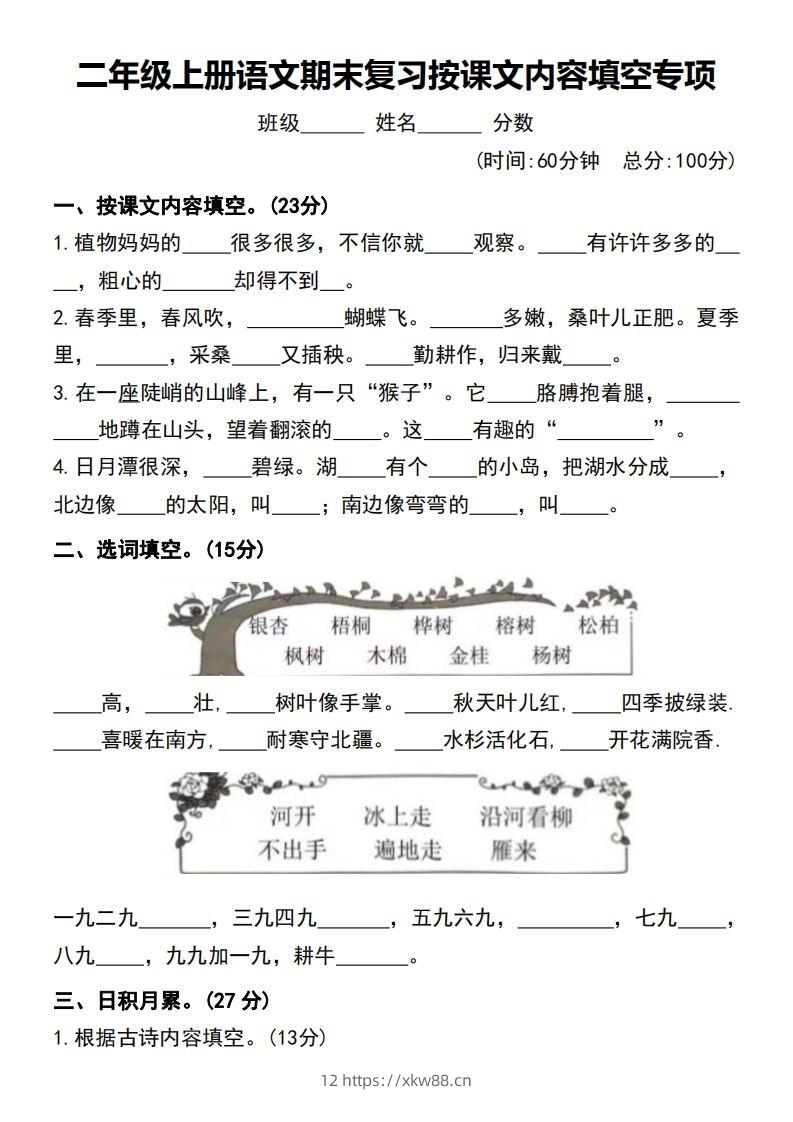 二年级上册语文期末复习按课文内容填空专项
班级______ 姓名______ 分数
(时间:60分钟 总分:100分)
一、按课文内容填空。(23分)
1.植物妈妈的____很多很多，不信你就____观察。____有许许多多的__
__，粗心的______却得不到__。
2.春季里，春风吹，________蝴蝶飞。______多嫩，桑叶儿正肥。夏季
里，______，采桑____又插秧。____勤耕作，归来戴____。
3.在一座陡峭的山峰上，有一只“猴子”。它____胳膊抱着腿，______
____地蹲在山头，望着翻滚的____。这____有趣的“________”。
4.日月潭很深，____碧绿。湖____有个____的小岛，把湖水分成____，
北边像____的太阳，叫____；南边像弯弯的____，叫____。
二、选词填空。(15分)
银杏 梧桐 桦树 榕树 松柏
枫树 木棉 金桂 杨树
____高，____壮,____树叶像手掌。____秋天叶儿红,____四季披绿装.
____喜暖在南方,____耐寒守北疆。____水杉活化石,____开花满院香.
河开 冰上走 沿河看柳
不出手 遍地走 雁来
一九二九______，三九四九______，五九六九，________，七九____，
八九____，九九加一九，耕牛______。
三、日积月累。(27 分)
1.根据古诗内容填空。(13分)
12 https://xkw88.cn